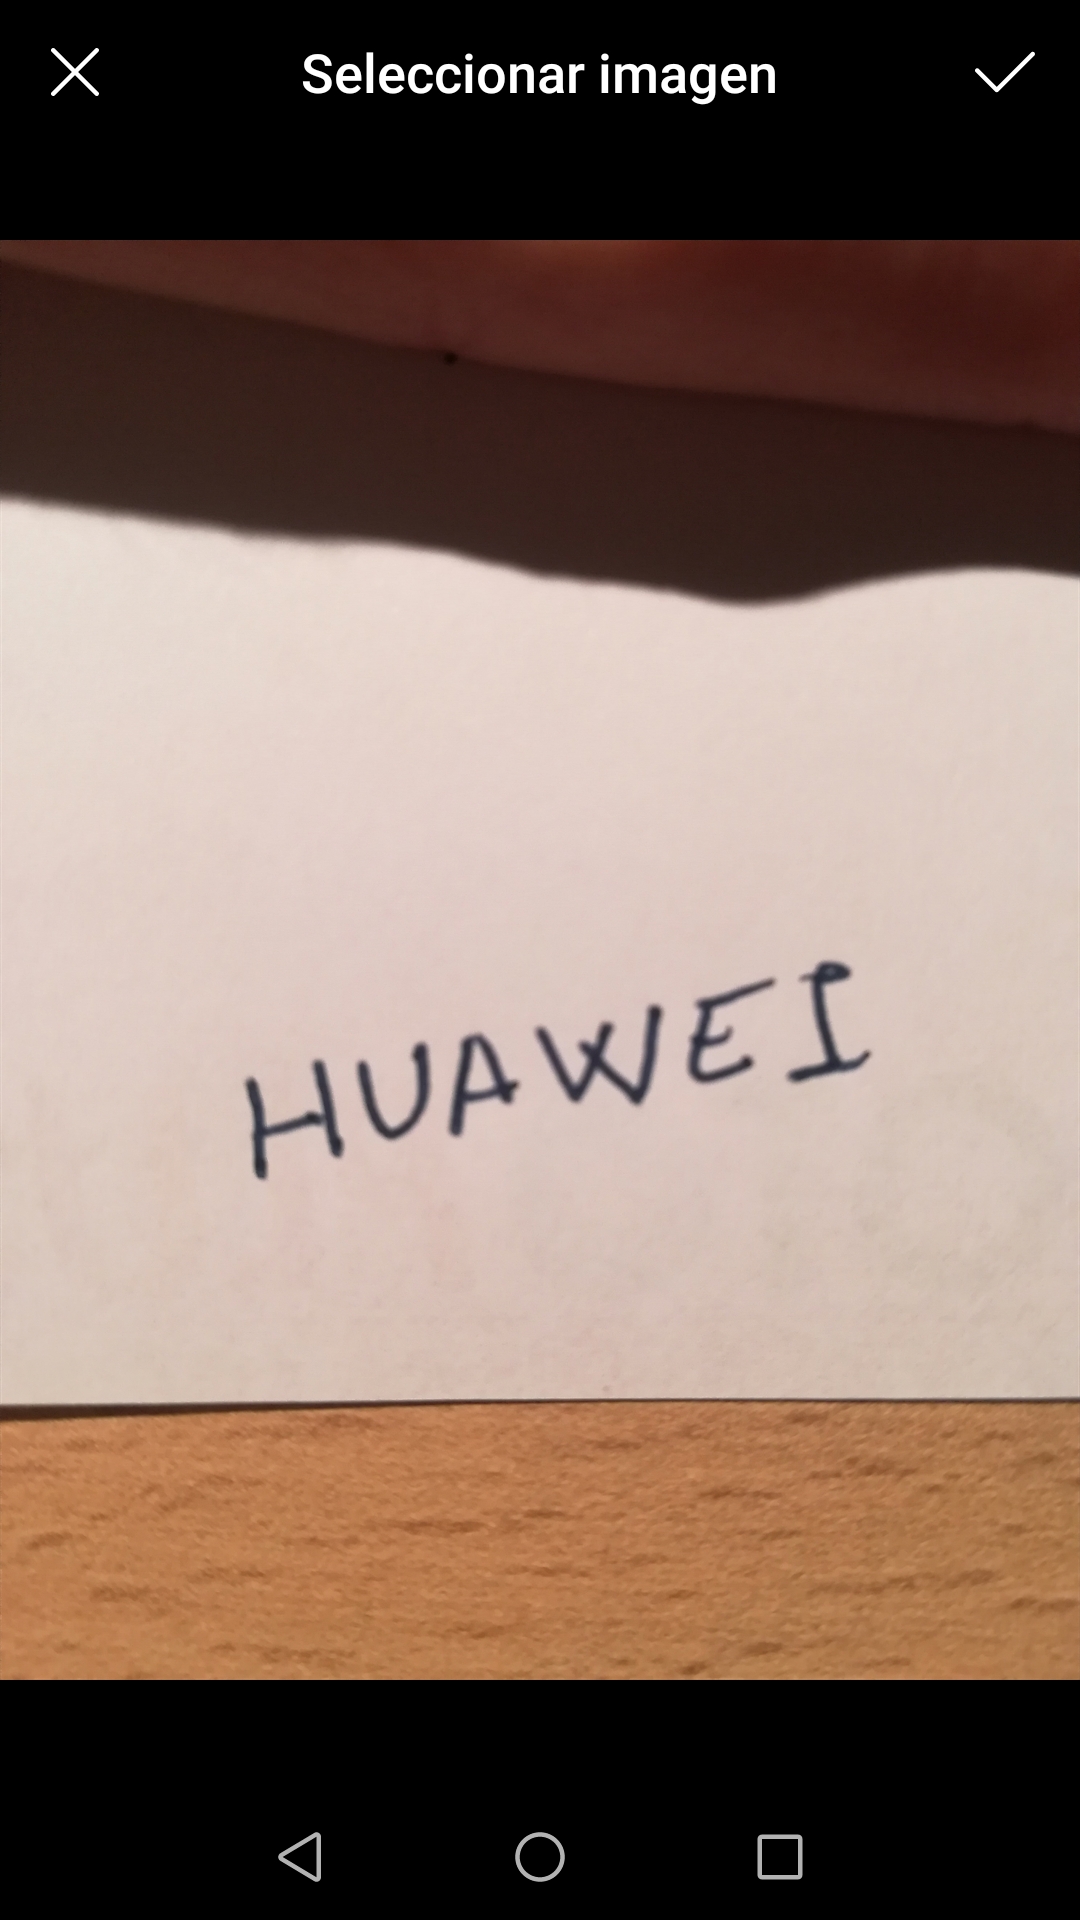 Seleccionar imagen
HUAWEI